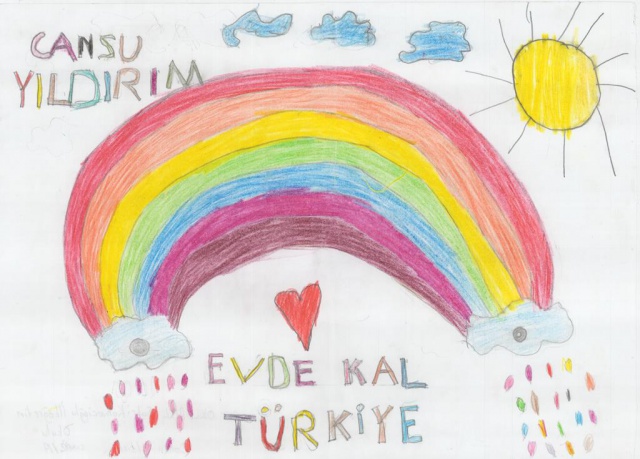 CANSU
YILDIRIM
EVDE KAL
TÜRKİYE